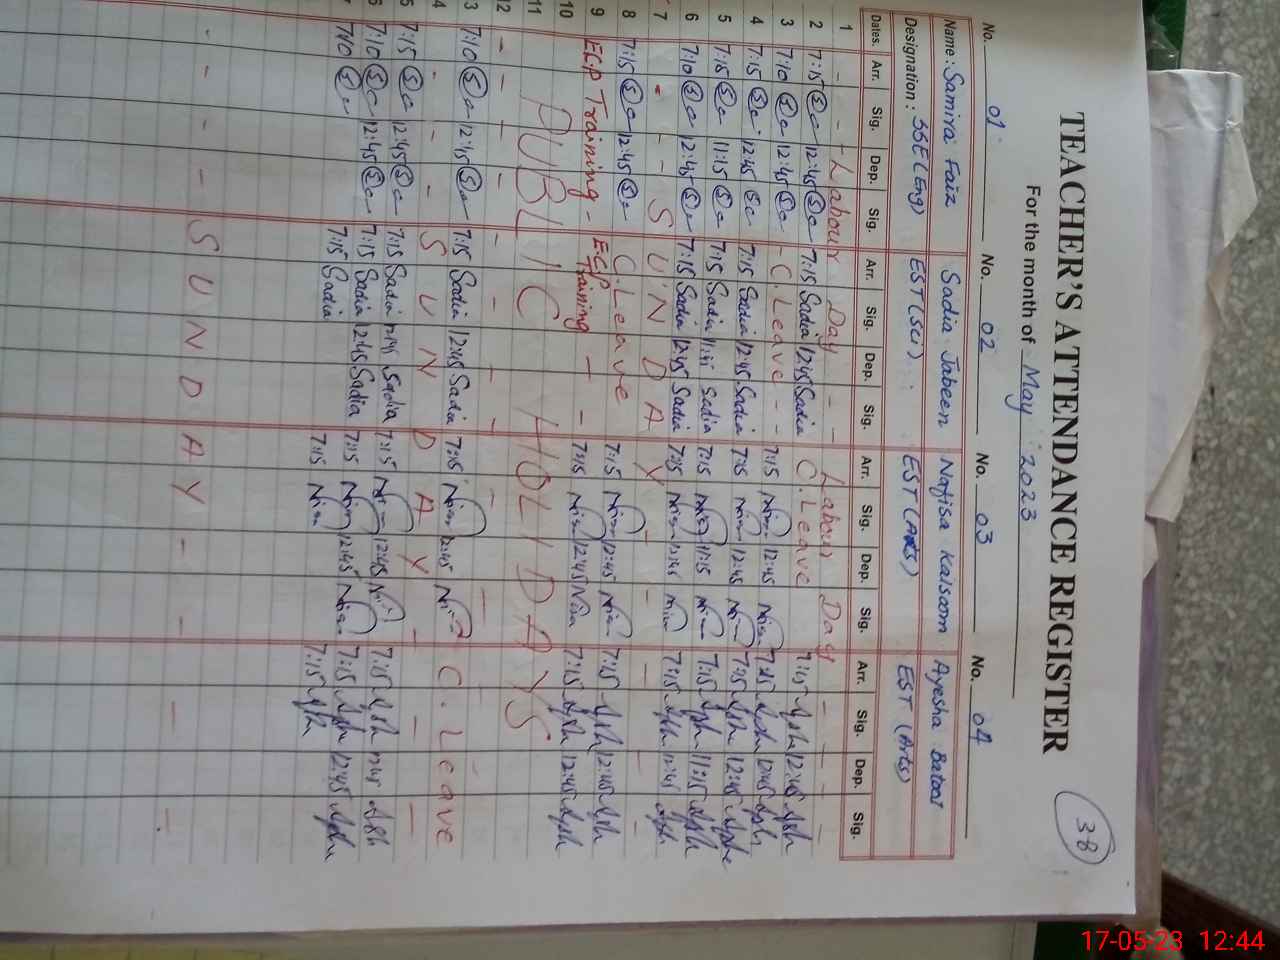 38
TEACHER'S ATTENDANCE REGISTER
For the month of May 2023
No. 01 No. 02 No. 03 No. 04
Name: Samira Faiz Sadia Jabeen Nafisa Kalsoom Ayesha Batool
Designation: SSE (Eng) EST (Sci) EST (Arts) EST (Arts)
Dates. Arr. Sig. Dep. Sig. Arr. Sig. Dep. Sig. Arr. Sig. Dep. Sig. Arr. Sig. Dep. Sig.
1 - - - Labour Day - - Labour Day - - - -
2 7:15 12:45 7:15 Sadia 12:45 Sadia C. Leave 7:15 12:45
3 7:10 12:45 - C. Leave - - 7:15 12:45 7:15 12:45
4 7:15 12:45 7:15 Sadia 12:45 Sadia 7:15 12:45 7:15 12:45
5 7:15 11:15 7:15 Sadia 11:15 Sadia 7:15 11:15 7:15 11:15
6 7:10 12:45 7:15 Sadia 12:45 Sadia 7:15 12:45 7:15 12:45
7 - - - SUNDAY - - - - -
8 7:15 12:45 C. Leave 7:15 12:45 7:15 12:45
9 ECP Training - ECP Training - - 7:15 12:45 7:15 12:45
10
11 PUBLIC HOLIDAYS
12 - - - - - - - - -
3 7:10 12:45 7:15 Sadia 12:45 Sadia 7:15 12:45 C. Leave
4 - - - SUNDAY - - -
5 7:15 12:45 7:15 Sadia 12:45 Sadia 7:15 12:45 7:15 12:45
6 7:10 12:45 7:15 Sadia 12:45 Sadia 7:15 12:45 7:15 12:45
7 7:10 7:15 Sadia 7:15 7:15
- - - - SUNDAY - - - -
17-05-23 12:44